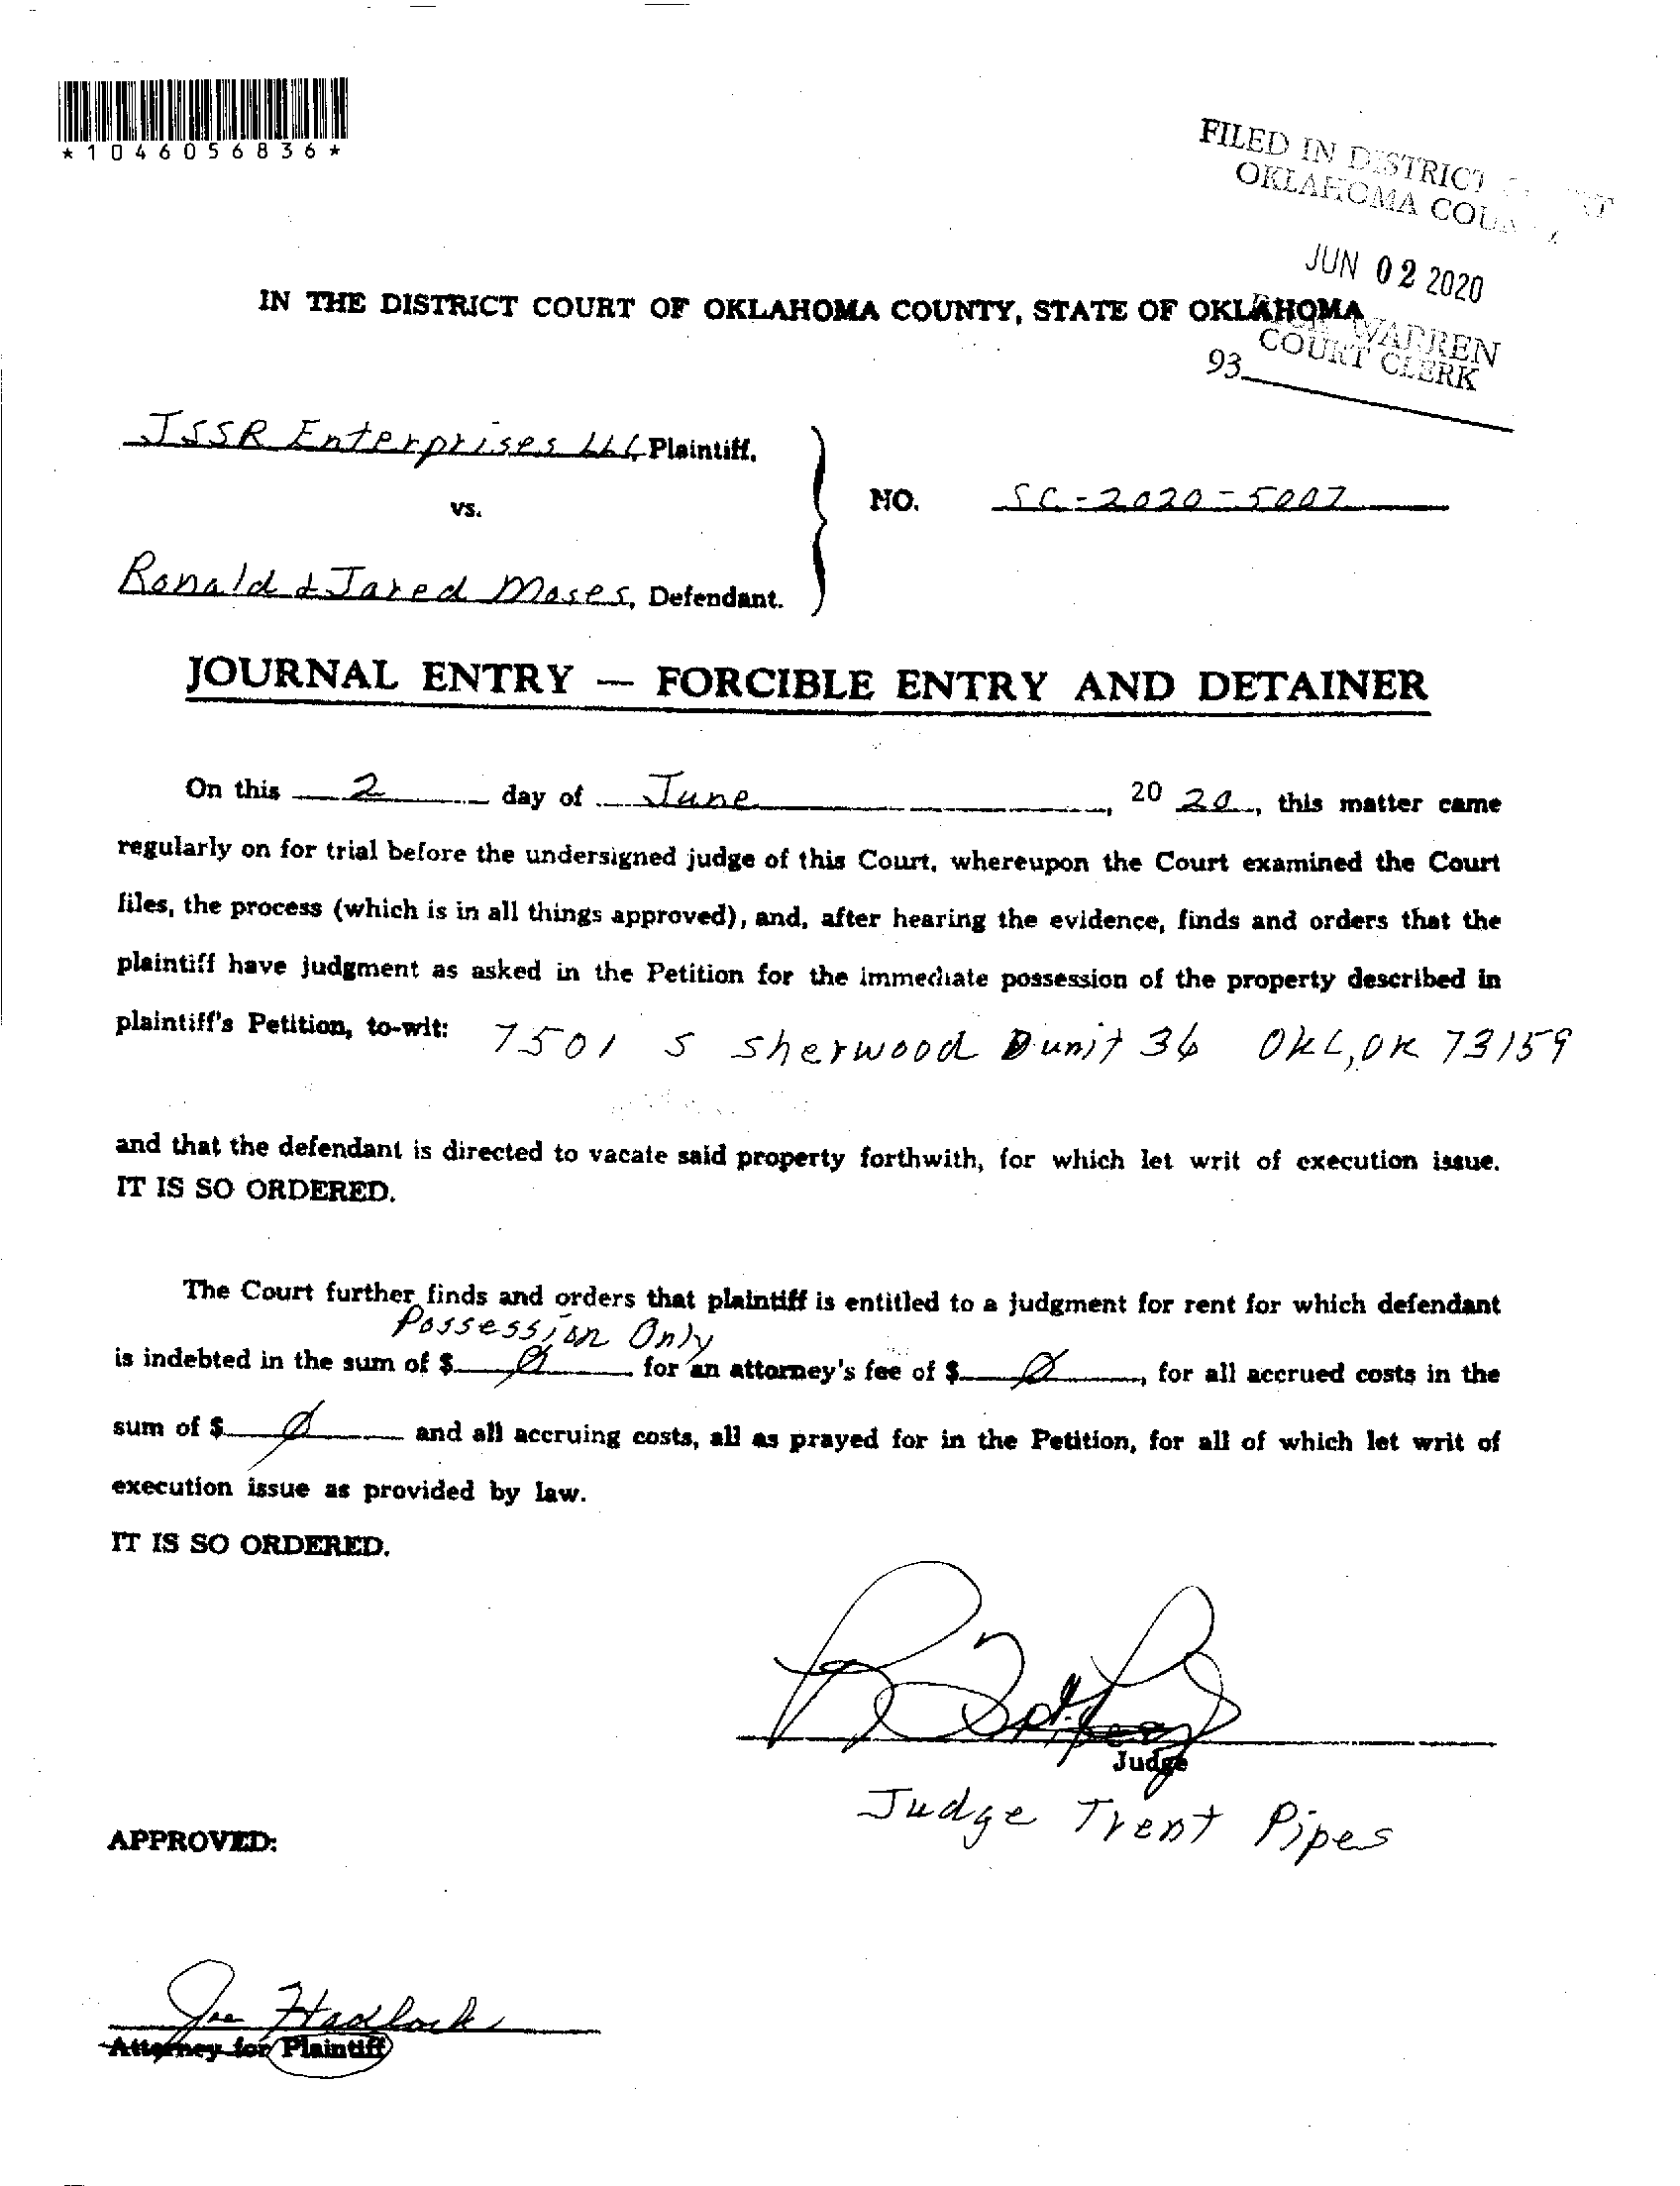 *1046056836*
FILED IN DISTRICT
OKLAHOMA
JUN 02 2020
IN THE DISTRICT COURT OF OKLAHOMA COUNTY, STATE OF OKLAHOMA
WARREN
COURT CLERK
93
JSSR Enterprises LLC Plaintiff,
vs.
NO. SC-2020-5007
Ronald & Jared Moses, Defendant.
JOURNAL ENTRY — FORCIBLE ENTRY AND DETAINER
On this 2 day of June, 20 20, this matter came
regularly on for trial before the undersigned judge of this Court, whereupon the Court examined the Court
files, the process (which is in all things approved), and, after hearing the evidence, finds and orders that the
plaintiff have judgment as asked in the Petition for the immediate possession of the property described in
plaintiff's Petition, to-wit: 7501 S Sherwood unit 36 OKC, OK 73159
and that the defendant is directed to vacate said property forthwith, for which let writ of execution issue.
IT IS SO ORDERED.
The Court further finds and orders that plaintiff is entitled to a judgment for rent for which defendant
Possession Only
is indebted in the sum of $ Ø for an attorney's fee of $ Ø, for all accrued costs in the
sum of $ Ø and all accruing costs, all as prayed for in the Petition, for all of which let writ of
execution issue as provided by law.
IT IS SO ORDERED.
Judge
Judge Trent Pipes
APPROVED:
Joe Hadlock
Attorney for Plaintiff